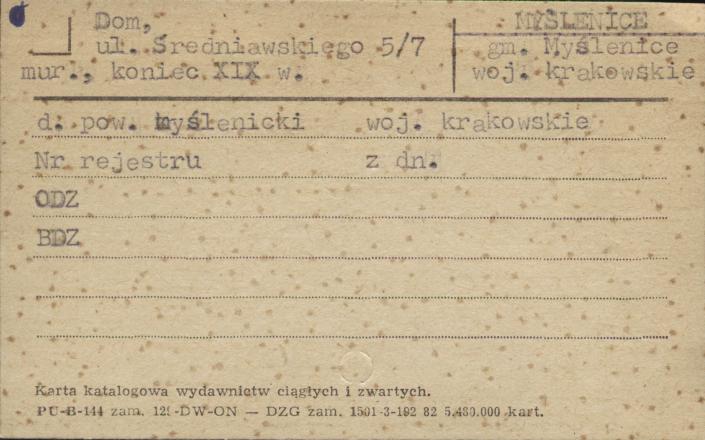 Dom,
ul. Średniawskiego 5/7
mur., koniec XIX w.
MYŚLENICE
gm. Myślenice
woj. krakowskie
d. pow. myślenicki woj. krakowskie
Nr rejestru z dn.
ODZ
BDZ
Karta katalogowa wydawnictw ciągłych i zwartych.
PU-B-144 zam. -DW-ON — DZG zam. 1501-3-192 82 5.480.000 kart.